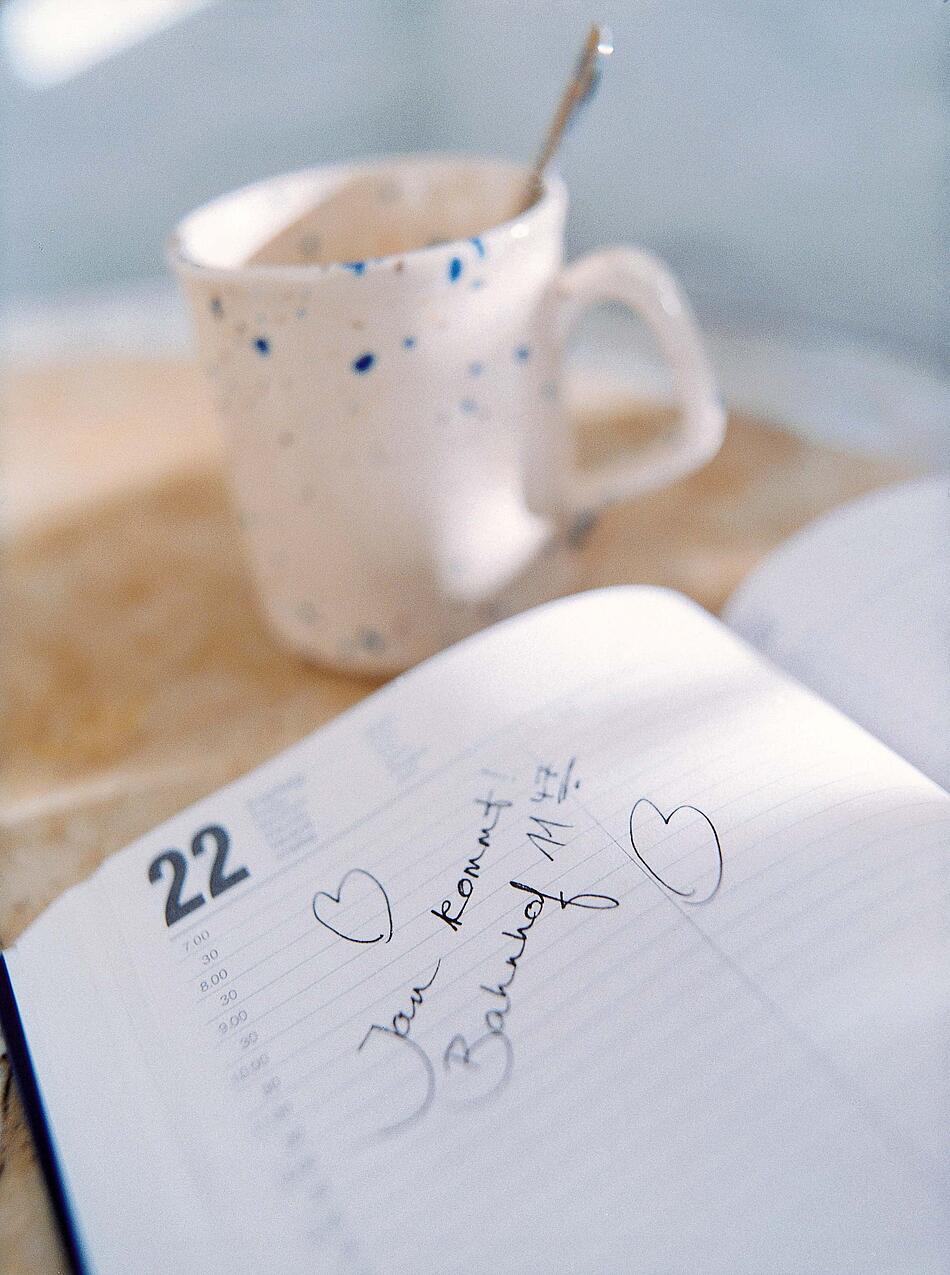 22
7.00
30
8.00
30
9.00
30
10.00
30
Jan kommt!
Bahnhof 11 47